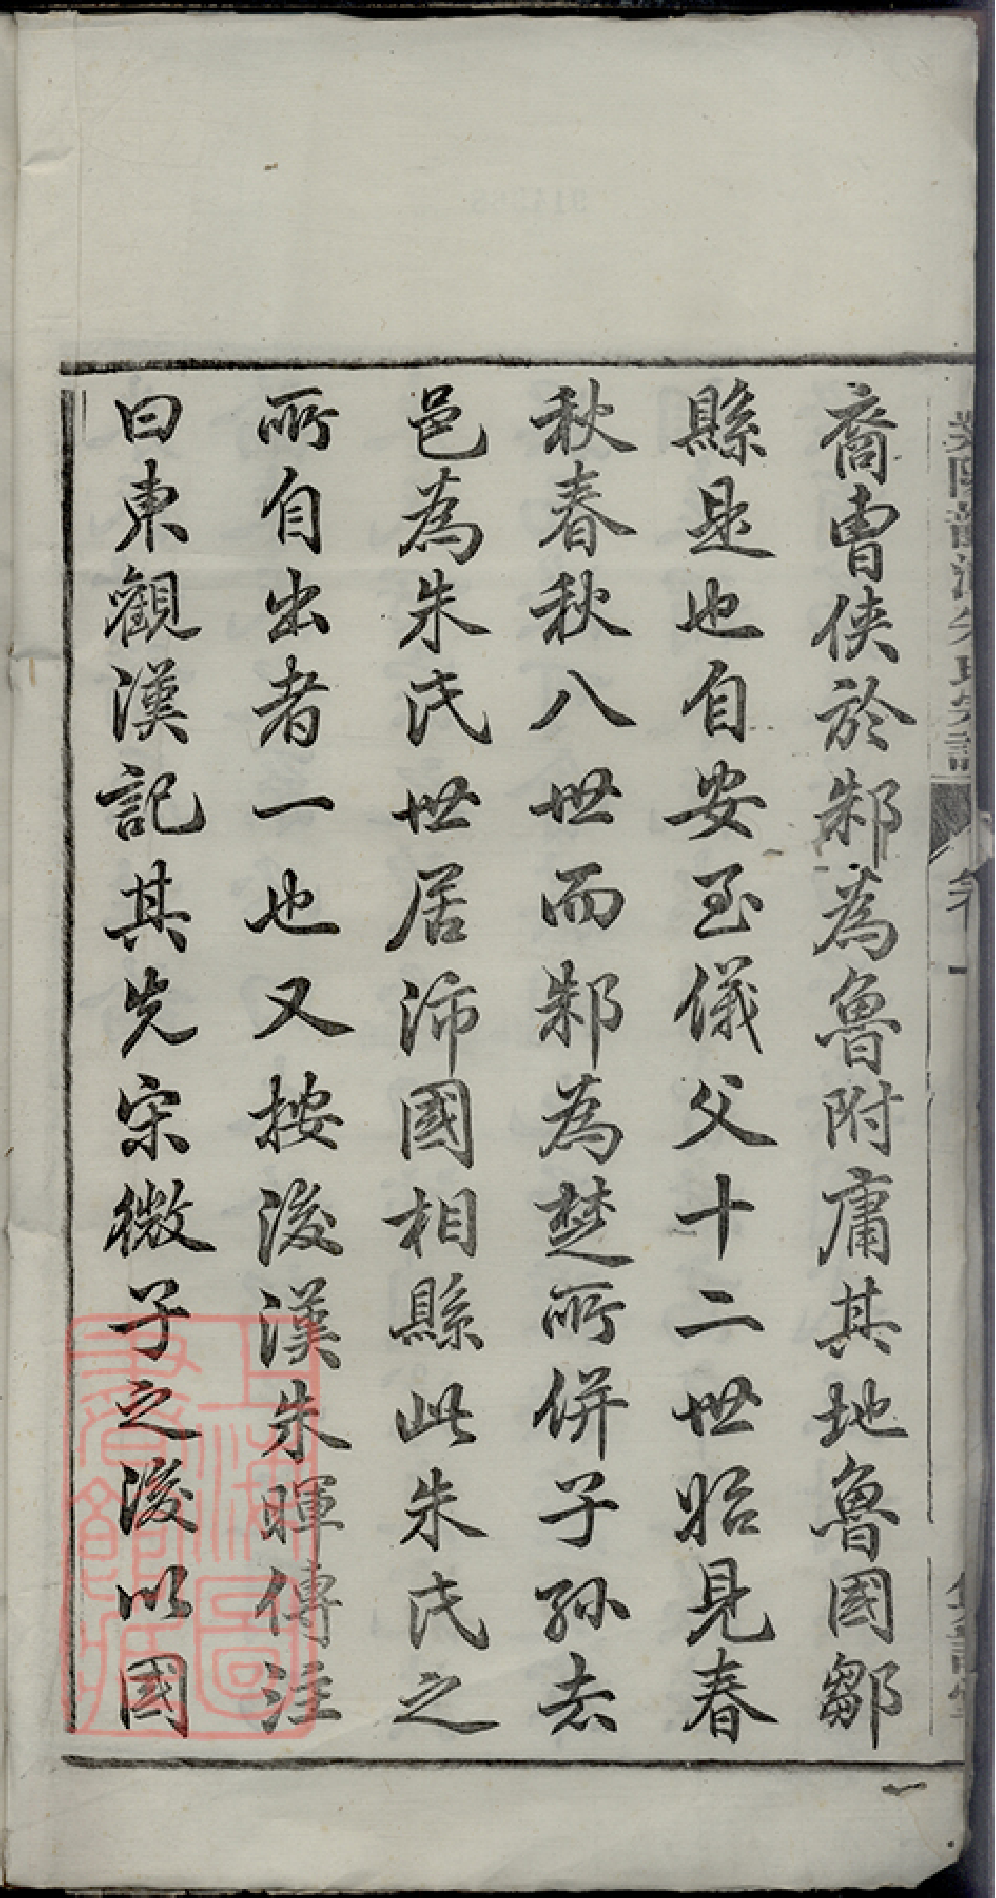 裔曹俠於邾為魯附庸其地魯國鄒
縣是也自安至儀父十二世始見春
秋春秋八世而邾為楚所併子孫去
邑為朱氏世居沛國相縣此朱氏之
所自出者一也又按後漢朱暉傳注
曰東觀漢記其先宋微子之後以國
上海圖書館藏